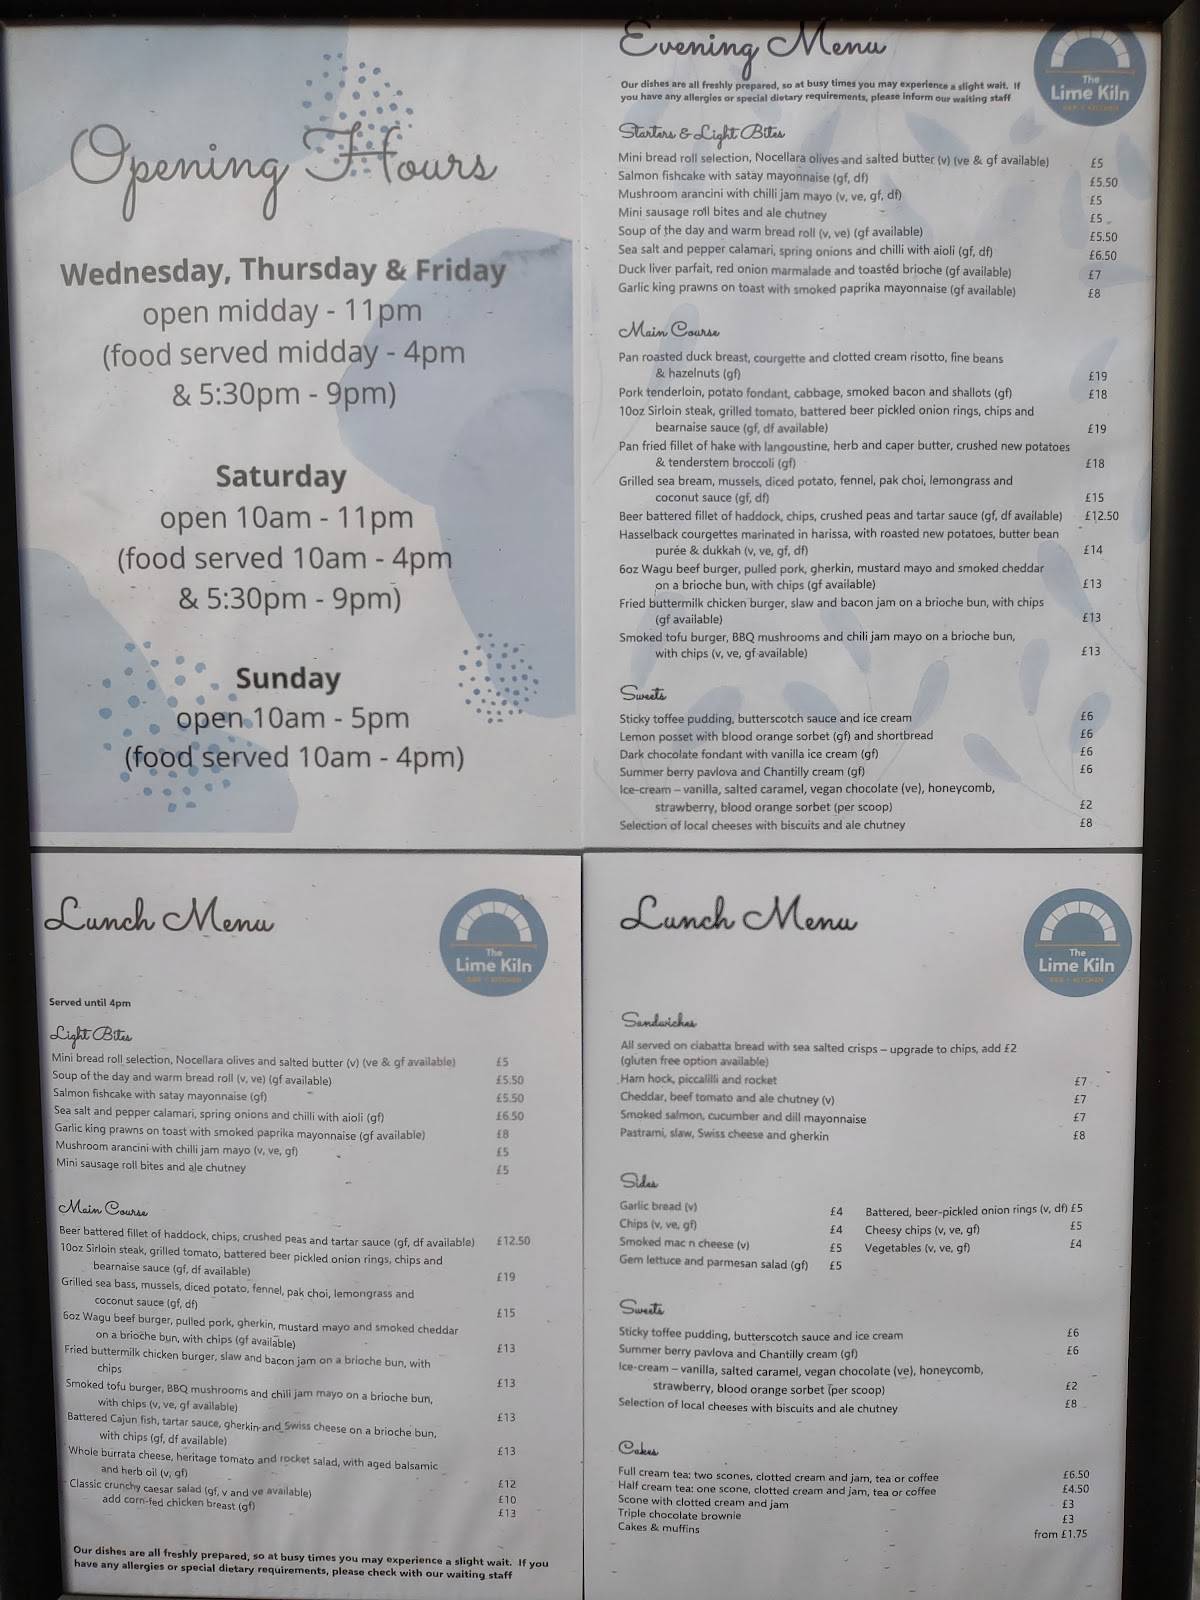 Opening Hours
Wednesday, Thursday & Friday
open midday - 11pm
(food served midday - 4pm
& 5:30pm - 9pm)
Saturday
open 10am - 11pm
(food served 10am - 4pm
& 5:30pm - 9pm)
Sunday
open 10am - 5pm
(food served 10am - 4pm)
Evening Menu
The
Lime Kiln
BAR + KITCHEN
Our dishes are all freshly prepared, so at busy times you may experience a slight wait. If
you have any allergies or special dietary requirements, please inform our waiting staff
Starters & Light Bites
Mini bread roll selection, Nocellara olives and salted butter (v) (ve & gf available) £5
Salmon fishcake with satay mayonnaise (gf, df) £5.50
Mushroom arancini with chilli jam mayo (v, ve, gf, df) £5
Mini sausage roll bites and ale chutney £5
Soup of the day and warm bread roll (v, ve) (gf available) £5.50
Sea salt and pepper calamari, spring onions and chilli with aioli (gf, df) £6.50
Duck liver parfait, red onion marmalade and toasted brioche (gf available) £7
Garlic king prawns on toast with smoked paprika mayonnaise (gf available) £8
Main Course
Pan roasted duck breast, courgette and clotted cream risotto, fine beans
& hazelnuts (gf) £19
Pork tenderloin, potato fondant, cabbage, smoked bacon and shallots (gf) £18
10oz Sirloin steak, grilled tomato, battered beer pickled onion rings, chips and
bearnaise sauce (gf, df available) £19
Pan fried fillet of hake with langoustine, herb and caper butter, crushed new potatoes
& tenderstem broccoli (gf) £18
Grilled sea bream, mussels, diced potato, fennel, pak choi, lemongrass and
coconut sauce (gf, df) £15
Beer battered fillet of haddock, chips, crushed peas and tartar sauce (gf, df available) £12.50
Hasselback courgettes marinated in harissa, with roasted new potatoes, butter bean
purée & dukkah (v, ve, gf, df) £14
6oz Wagu beef burger, pulled pork, gherkin, mustard mayo and smoked cheddar
on a brioche bun, with chips (gf available) £13
Fried buttermilk chicken burger, slaw and bacon jam on a brioche bun, with chips
(gf available) £13
Smoked tofu burger, BBQ mushrooms and chili jam mayo on a brioche bun,
with chips (v, ve, gf available) £13
Sweets
Sticky toffee pudding, butterscotch sauce and ice cream £6
Lemon posset with blood orange sorbet (gf) and shortbread £6
Dark chocolate fondant with vanilla ice cream (gf) £6
Summer berry pavlova and Chantilly cream (gf) £6
Ice-cream – vanilla, salted caramel, vegan chocolate (ve), honeycomb,
strawberry, blood orange sorbet (per scoop) £2
Selection of local cheeses with biscuits and ale chutney £8
Lunch Menu
The
Lime Kiln
BAR + KITCHEN
Served until 4pm
Light Bites
Mini bread roll selection, Nocellara olives and salted butter (v) (ve & gf available) £5
Soup of the day and warm bread roll (v, ve) (gf available) £5.50
Salmon fishcake with satay mayonnaise (gf) £5.50
Sea salt and pepper calamari, spring onions and chilli with aioli (gf) £6.50
Garlic king prawns on toast with smoked paprika mayonnaise (gf available) £8
Mushroom arancini with chilli jam mayo (v, ve, gf) £5
Mini sausage roll bites and ale chutney £5
Main Course
Beer battered fillet of haddock, chips, crushed peas and tartar sauce (gf, df available) £12.50
10oz Sirloin steak, grilled tomato, battered beer pickled onion rings, chips and
bearnaise sauce (gf, df available) £19
Grilled sea bass, mussels, diced potato, fennel, pak choi, lemongrass and
coconut sauce (gf, df) £15
6oz Wagu beef burger, pulled pork, gherkin, mustard mayo and smoked cheddar
on a brioche bun, with chips (gf available) £13
Fried buttermilk chicken burger, slaw and bacon jam on a brioche bun, with
chips £13
Smoked tofu burger, BBQ mushrooms and chili jam mayo on a brioche bun,
with chips (v, ve, gf available) £13
Battered Cajun fish, tartar sauce, gherkin and Swiss cheese on a brioche bun,
with chips (gf, df available) £13
Whole burrata cheese, heritage tomato and rocket salad, with aged balsamic
and herb oil (v, gf) £12
Classic crunchy caesar salad (gf, v and ve available) £10
add corn-fed chicken breast (gf) £13
Our dishes are all freshly prepared, so at busy times you may experience a slight wait. If you
have any allergies or special dietary requirements, please check with our waiting staff
Lunch Menu
The
Lime Kiln
BAR + KITCHEN
Sandwiches
All served on ciabatta bread with sea salted crisps – upgrade to chips, add £2
(gluten free option available)
Ham hock, piccalilli and rocket £7
Cheddar, beef tomato and ale chutney (v) £7
Smoked salmon, cucumber and dill mayonnaise £7
Pastrami, slaw, Swiss cheese and gherkin £8
Sides
Garlic bread (v) £4 Battered, beer-pickled onion rings (v, df) £5
Chips (v, ve, gf) £4 Cheesy chips (v, ve, gf) £5
Smoked mac n cheese (v) £5 Vegetables (v, ve, gf) £4
Gem lettuce and parmesan salad (gf) £5
Sweets
Sticky toffee pudding, butterscotch sauce and ice cream £6
Summer berry pavlova and Chantilly cream (gf) £6
Ice-cream – vanilla, salted caramel, vegan chocolate (ve), honeycomb,
strawberry, blood orange sorbet (per scoop) £2
Selection of local cheeses with biscuits and ale chutney £8
Cakes
Full cream tea: two scones, clotted cream and jam, tea or coffee £6.50
Half cream tea: one scone, clotted cream and jam, tea or coffee £4.50
Scone with clotted cream and jam £3
Triple chocolate brownie £3
Cakes & muffins from £1.75